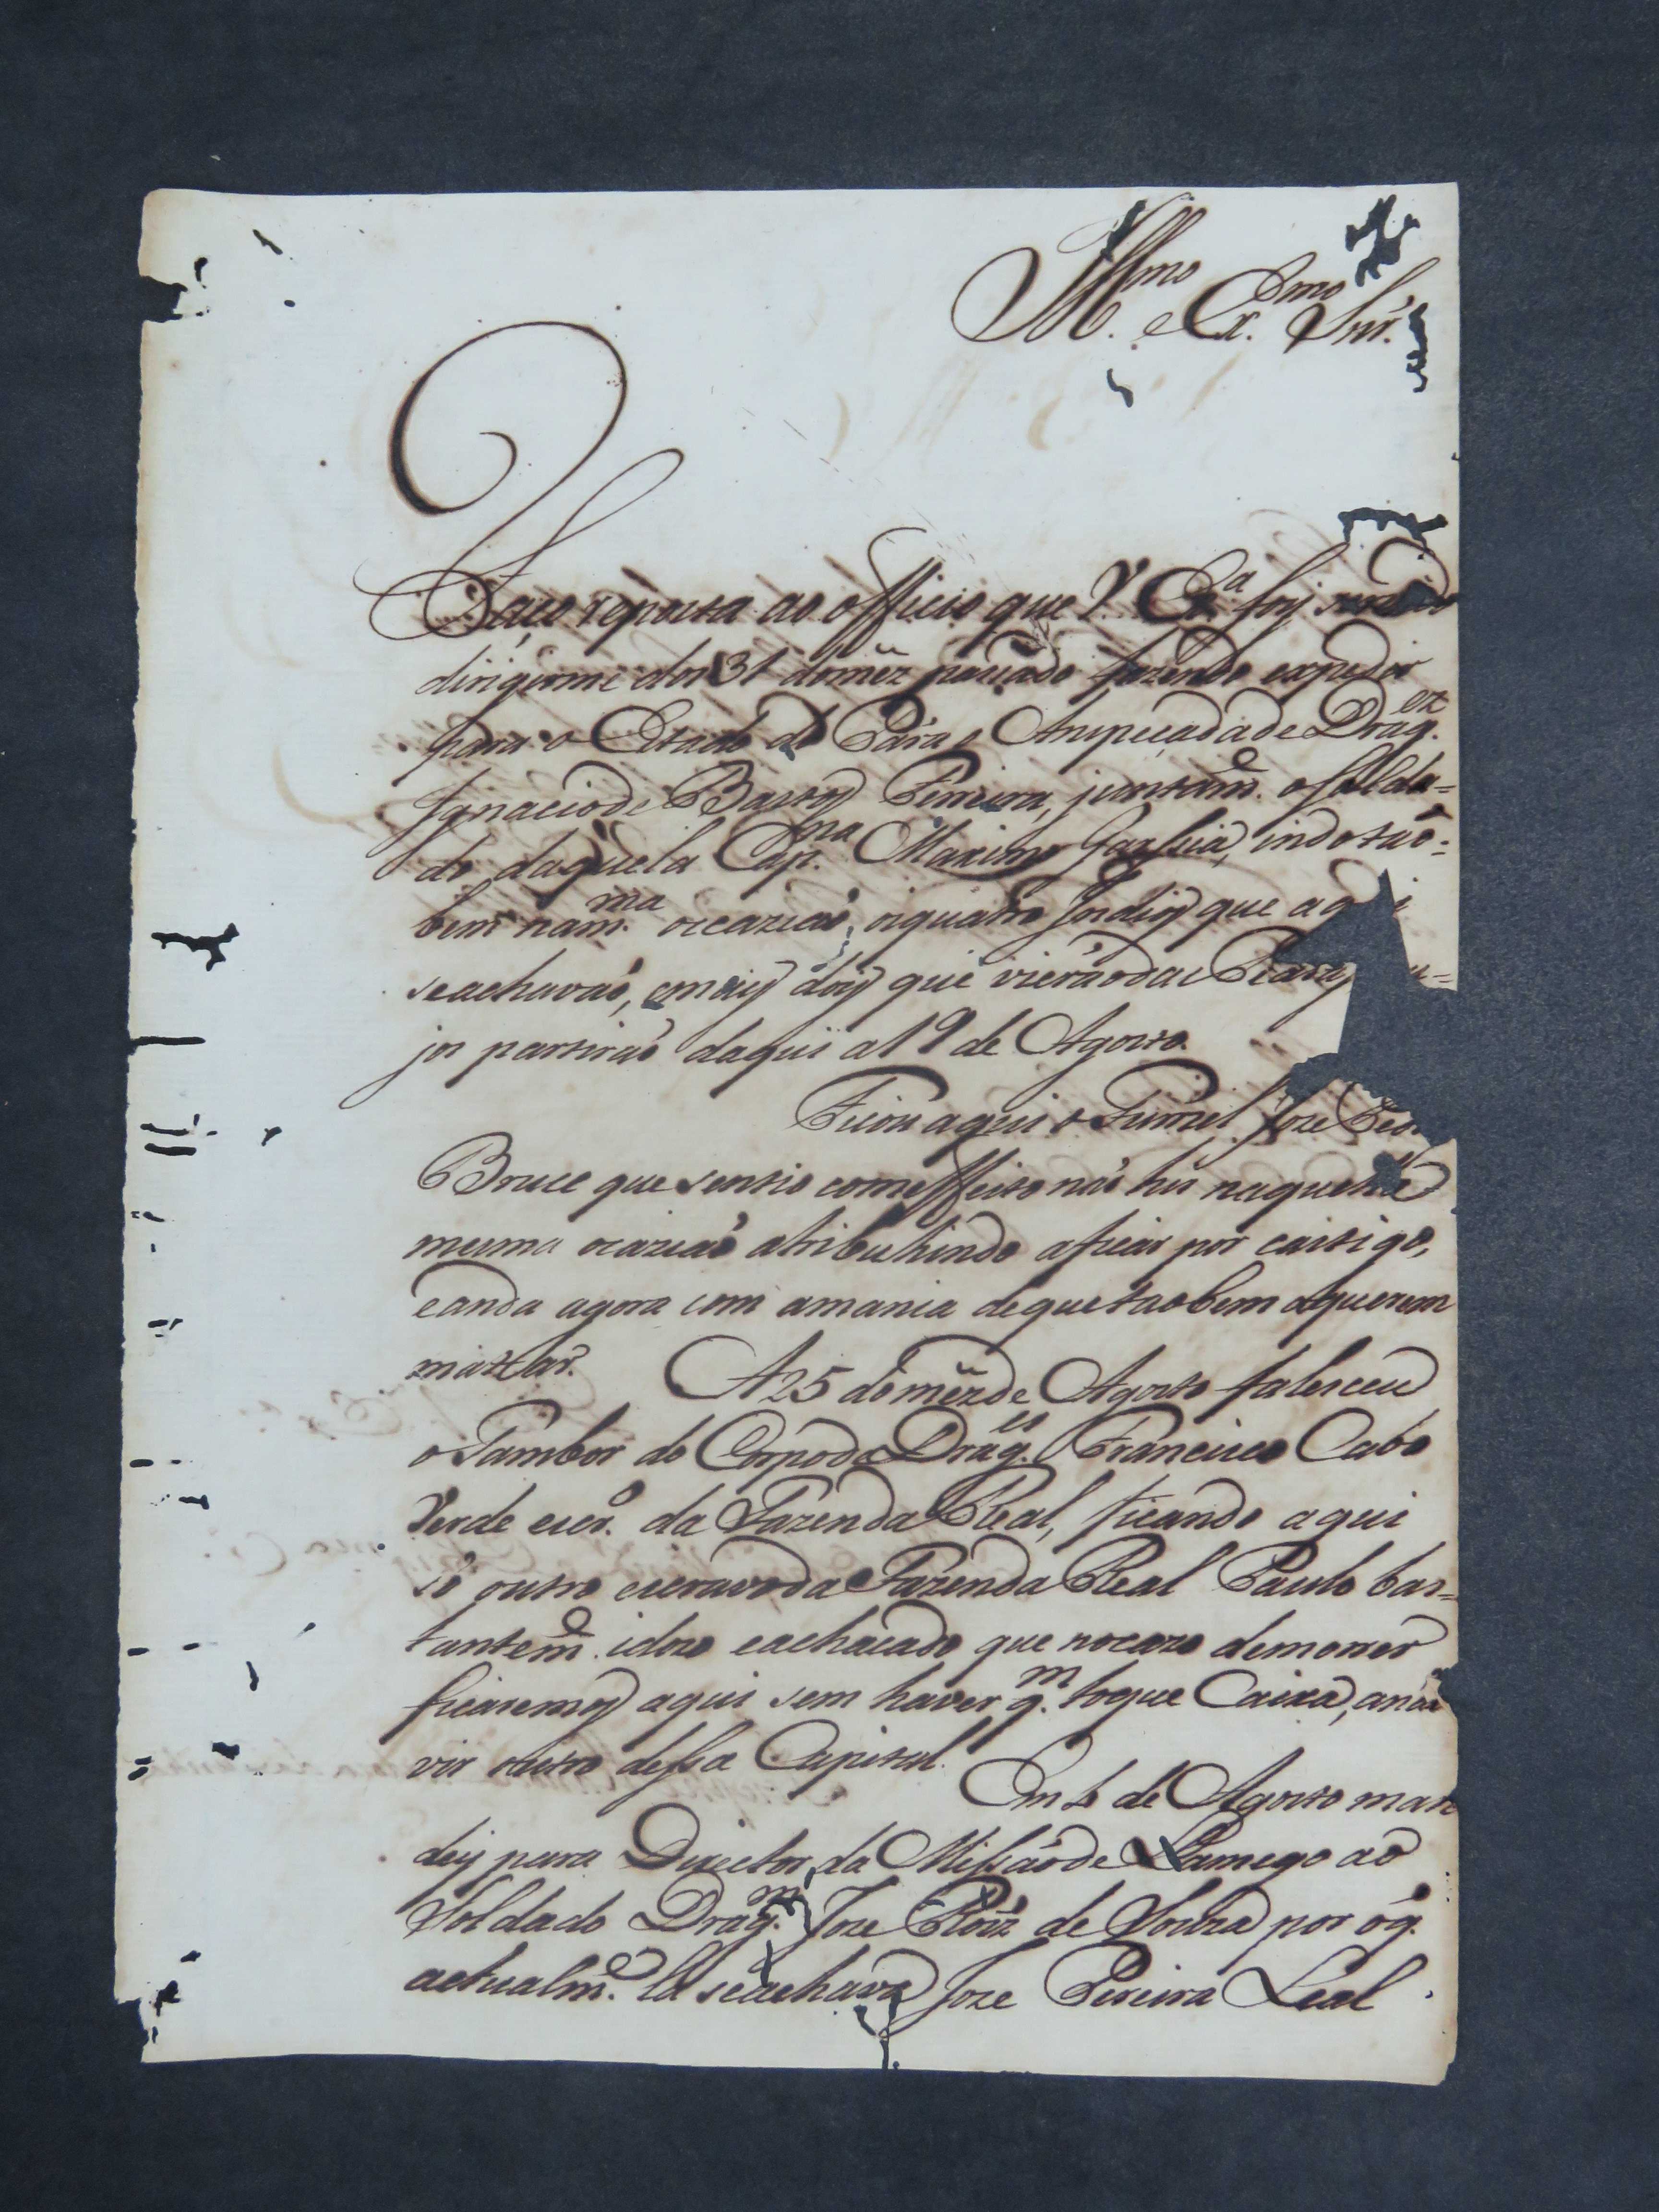 Ill.mo e Ex.mo Snr.
Faço reposta ao officio que V. Ex.a foy servido
dirigirme dos 31 do mez pasado fazendo expedir
para o Estado do Pará o Anspeçada de Drag.ez
Ignacio de Bastoz Pereira, juntam.e o solda=
do daquela Cap.nia Maximo Garsia, indo tao=
bem na m.ma occazião, os quatro Indioz que aqui
se achavão, e maiz doiz que vierão das
jos partirão daqui a 19 de Agosto.
Ficou aqui o Furriel Joze
Bruce que sentio com effeito não hir naquela
mesma ocazião atribuhindo a ficar por castigo,
e anda agora com a mania de que taobem o querem
matar. A 25 do mez de Agosto falesceu
o Tambor do Corpo de Drag.es Francisco Cabo
Verde escr.o da Fazenda Real, ficando aqui
só outro escravo da Fazenda Real Paulo bas=
tantem.e idozo e achacado que no cazo de morrer
ficaremoz aqui sem haver q.m toque Caixa, a não
vir outro dessa Capital.
Em 6 de Agosto man
dey para Director da Missão de Lamego ao
Soldado Drag.m Joze Roiz de Souza por óq.
actualm.e lá se achava Joze Pereira Leal